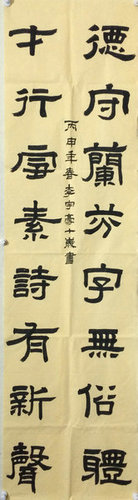 德守蘭芬字無俗體
才行素詩有新聲
丙申年春李宇豪十歲書